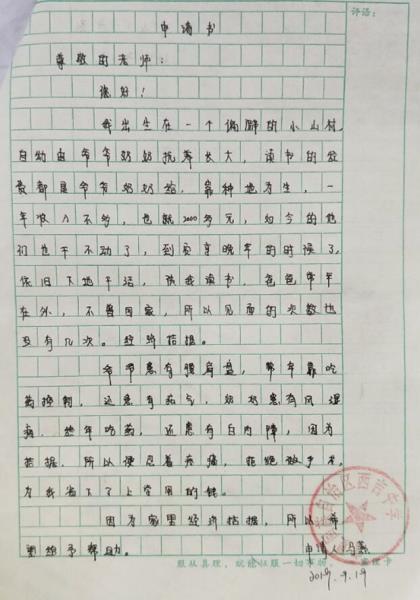 评语:
申请书
尊敬的老师:
您好!
我出生在一个偏僻的小山村,
自幼由爷爷奶奶抚养长大,读书的盘
费都是爷爷奶奶给,靠种地为生,一
年收入不多,也就2000多元,如今的他
们也干不动了,到了享晚年的时候了,
依旧下地干活,供我读书,爸爸常年
在外,不曾回家,所以见面的次数也
没有几次。经济拮据。
爷爷患有强肩盘,常年靠吃
药控制,还患有疝气,奶奶患有风湿
病,终年吃药,还患有白内障,因为
拮据,所以便忍着疼痛,拒绝做手术,
为我省下了上学用的钱。
因为家里经济拮据,所以希
望给予帮助。
申请人:冯燕
2019.9.19
服从真理,就能征服一切事物。